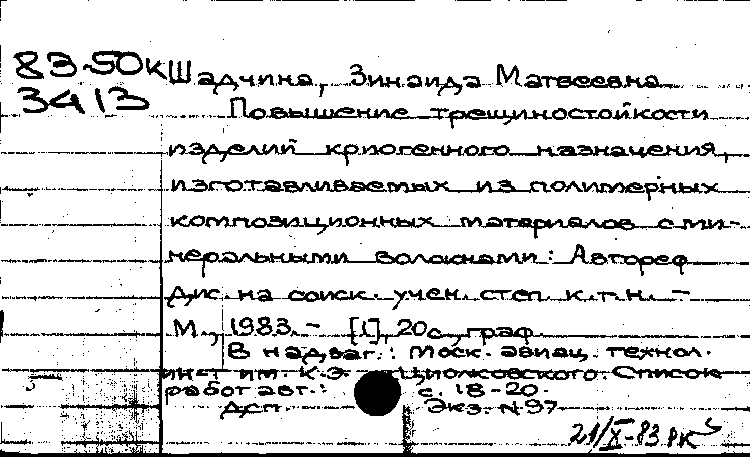 83-50к Шадчина, Зинаида Матвеевна
3413
Повышение трещиностойкости
изделий криогенного назначения,
изготавливаемых из полимерных
композиционных материалов с ми-
неральными волокнами: Автореф
дис. на соиск. учен. степ к.т.н. -
М., 1983. - [1], 20с., граф.
В надзаг.: Моск. авиац. технол.
ин-т им. К.Э. Циолковского. Список
работ авт.: с. 18-20.
Дсп. Экз. №97
21/X-83 РК